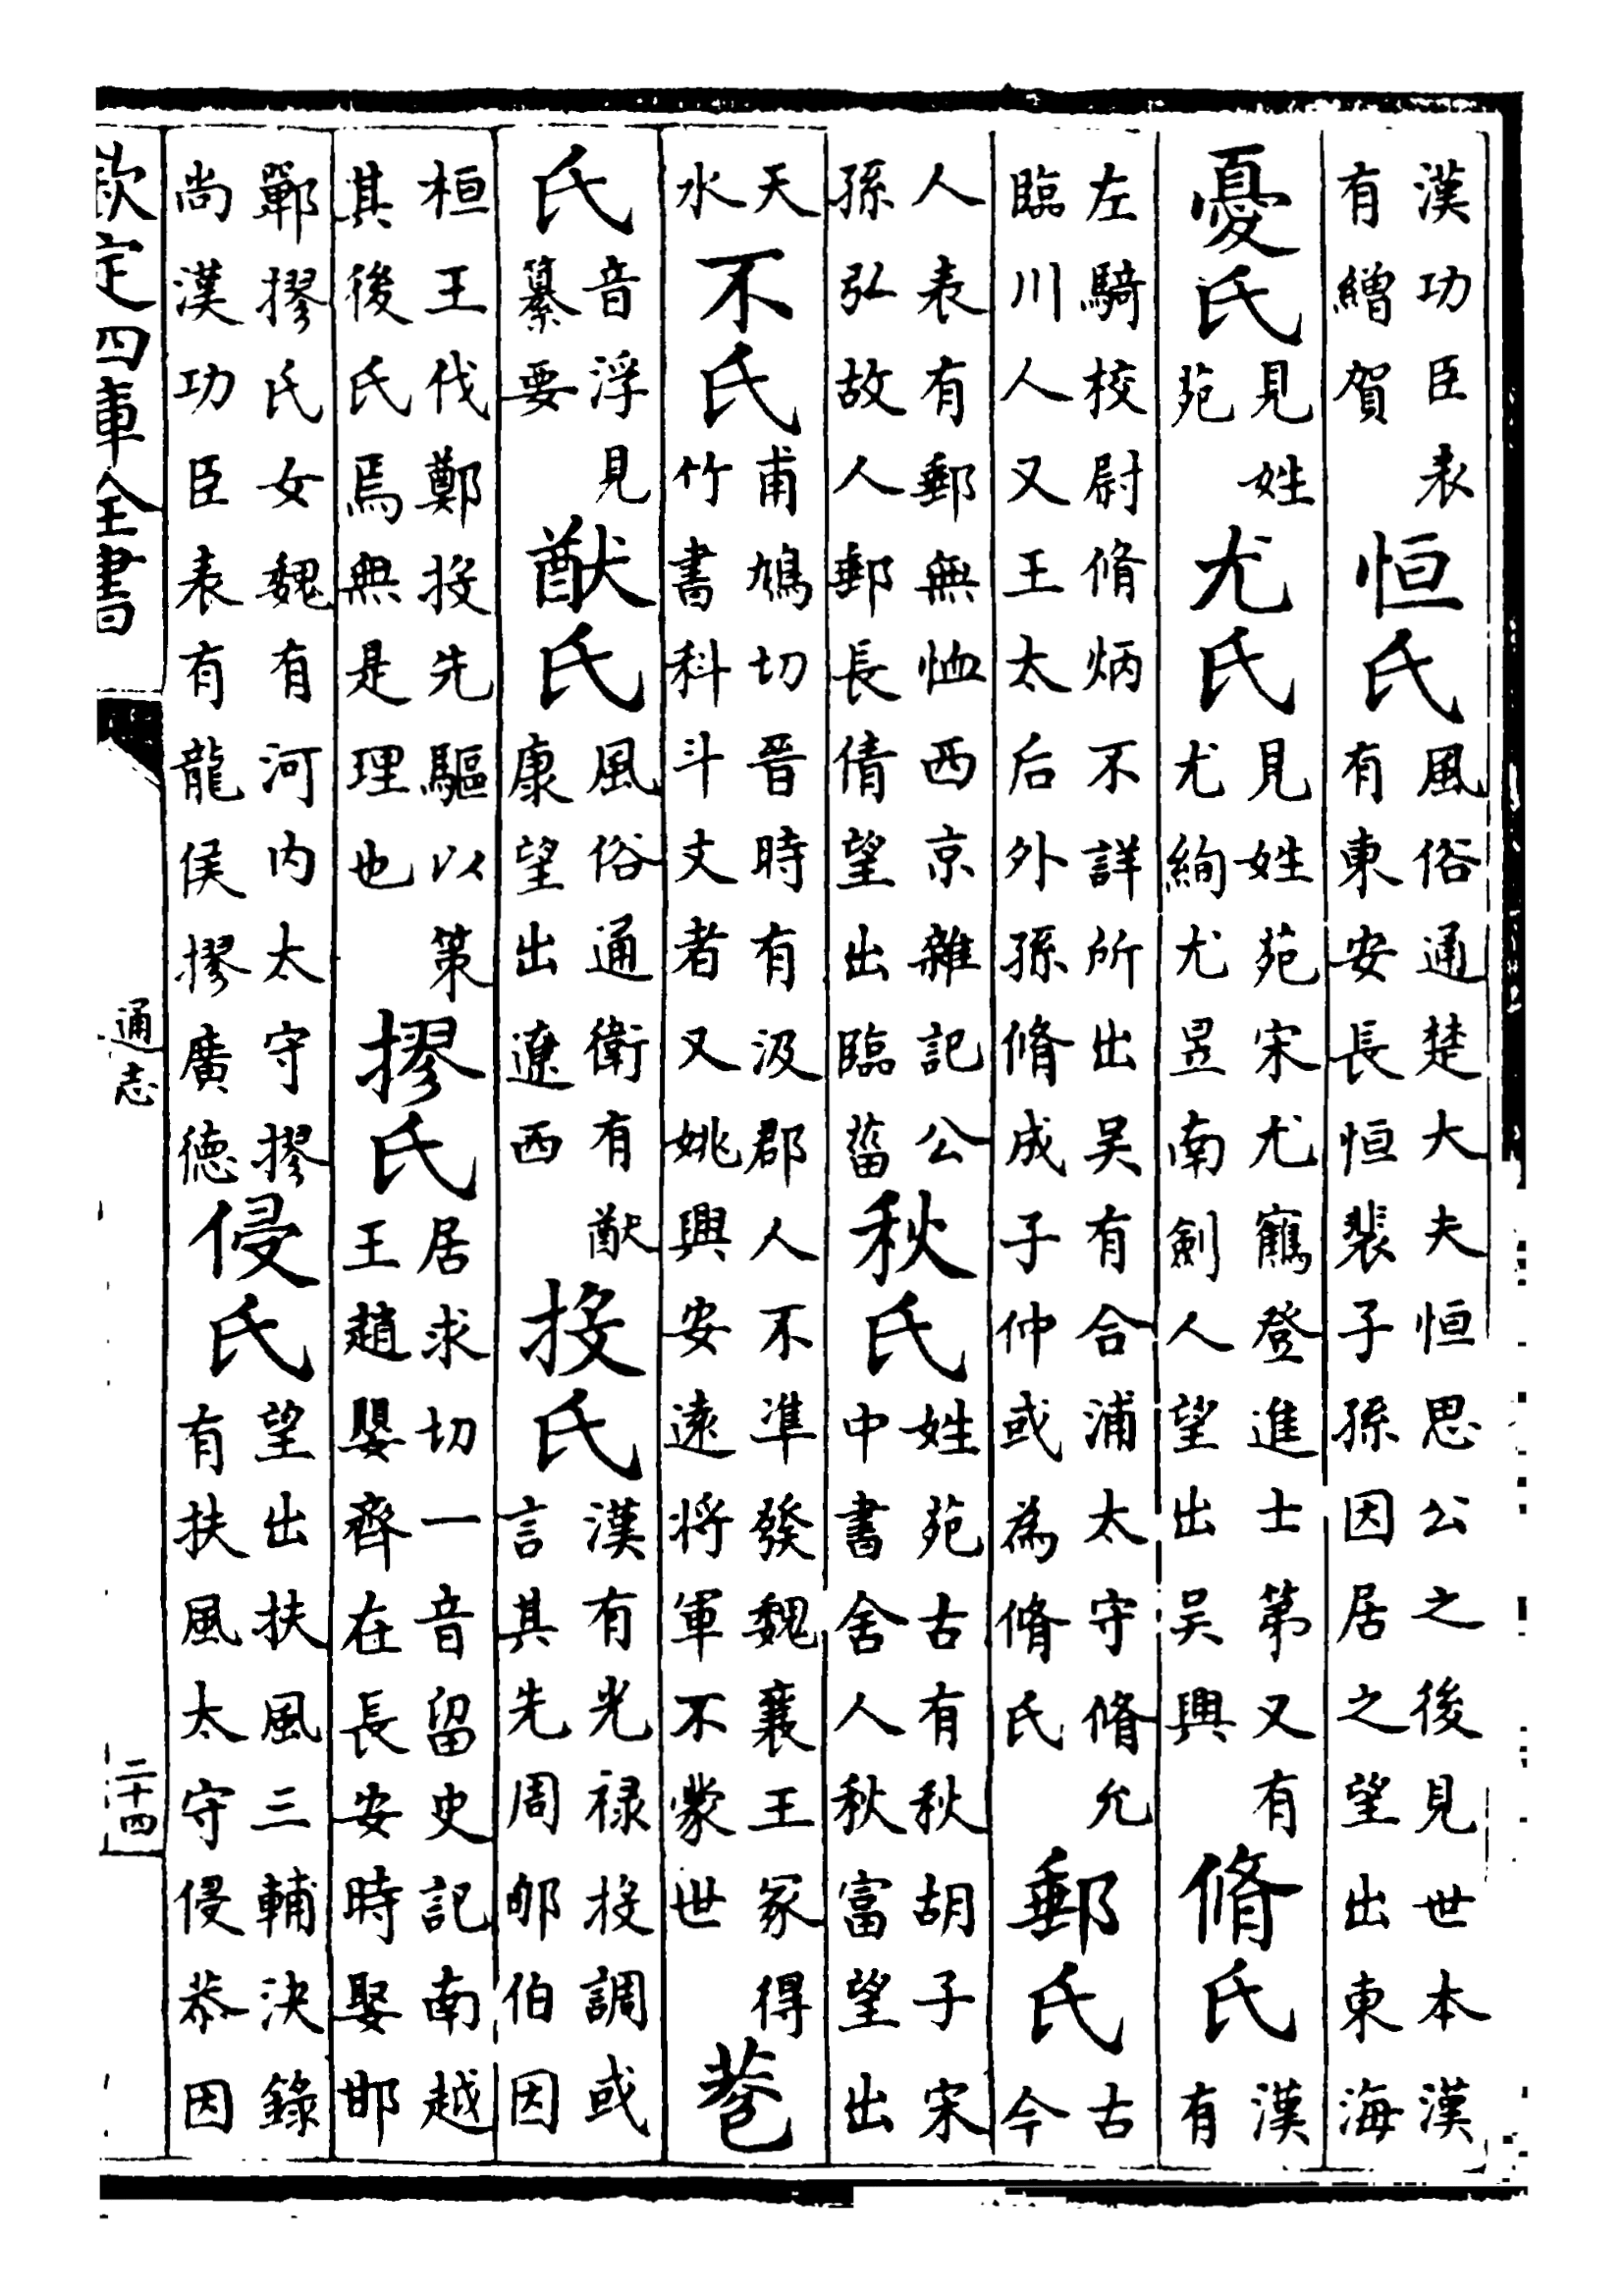 漢功臣表有繒賀恒氏風俗通楚大夫恒思公之後見世本漢有東安長恒裴子孫因居之望出東海
憂氏見姓苑尤氏見姓苑宋尤寉登進士第又有尤絢尤昱南劍人望出吳興脩氏漢有
左騎校尉脩炳不詳所出吳有合浦太守脩允臨川人又王太后外孫脩成子仲或為脩氏郵氏古今
人表有郵無恤西京雜記公孫弘故人郵長倩望出臨菑秋氏姓苑古有秋胡子宋中書舍人秋富望出
天水不氏甫鳩切晉時有汲郡人不準發魏襄王冢得竹書科斗文者又姚興安遠將軍不蒙世
氏音浮見纂要猷氏風俗通衛有猷康望出遼西投氏漢有光禄投調或言其先周郇伯因
桓王伐鄭投先驅以策其後氏焉無是理也摎氏居求切一音留史記南越王趙嬰齊在長安時娶邯
鄲摎氏女魏有河內太守摎尚漢功臣表有龍侯摎廣德侵氏望出扶風三輔決錄有扶風太守侵恭因
欽定四庫全書
通志
二十四